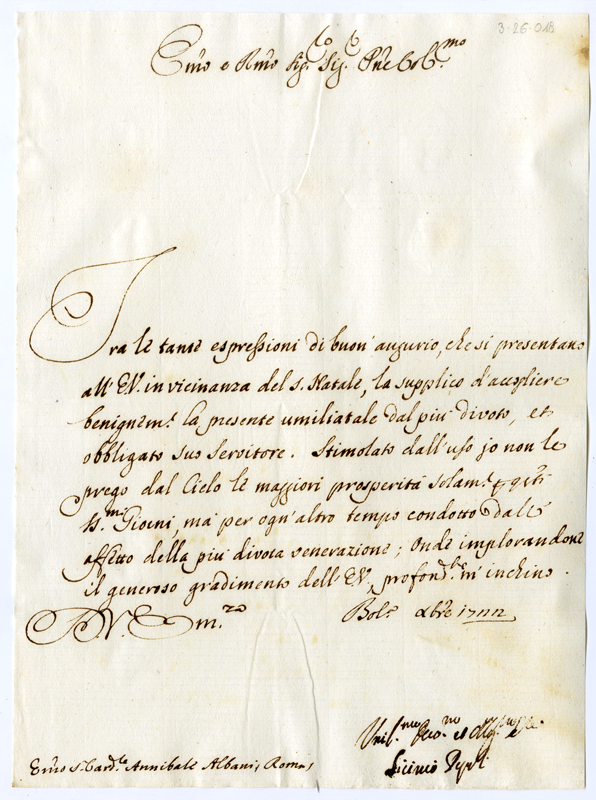 3-26-018
Em̃o e Rm̃o Sig.re Sig.re Pñe Col.mo
Tra le tante espressioni di buon'augurio, che si presentano
all'E.V. in vicinanza del S. Natale, la supplico d'accogliere
benignem.te la presente umiliatale dal più divoto, et
obbligato suo servitore. Stimolato dall'uso jo non le
prego dal Cielo le maggiori prosperità solam.te
SS.mi Giorni, ma per ogn'altro tempo condotto dall'
affetto della più divota venerazione; Onde implorandone
il generoso gradimento dell'E.V. m'inchino.
V. Em.za
Bol.a Xbre 1722
et
Licinio
Em̃o S.r Card.le Annibale Albani, Roma